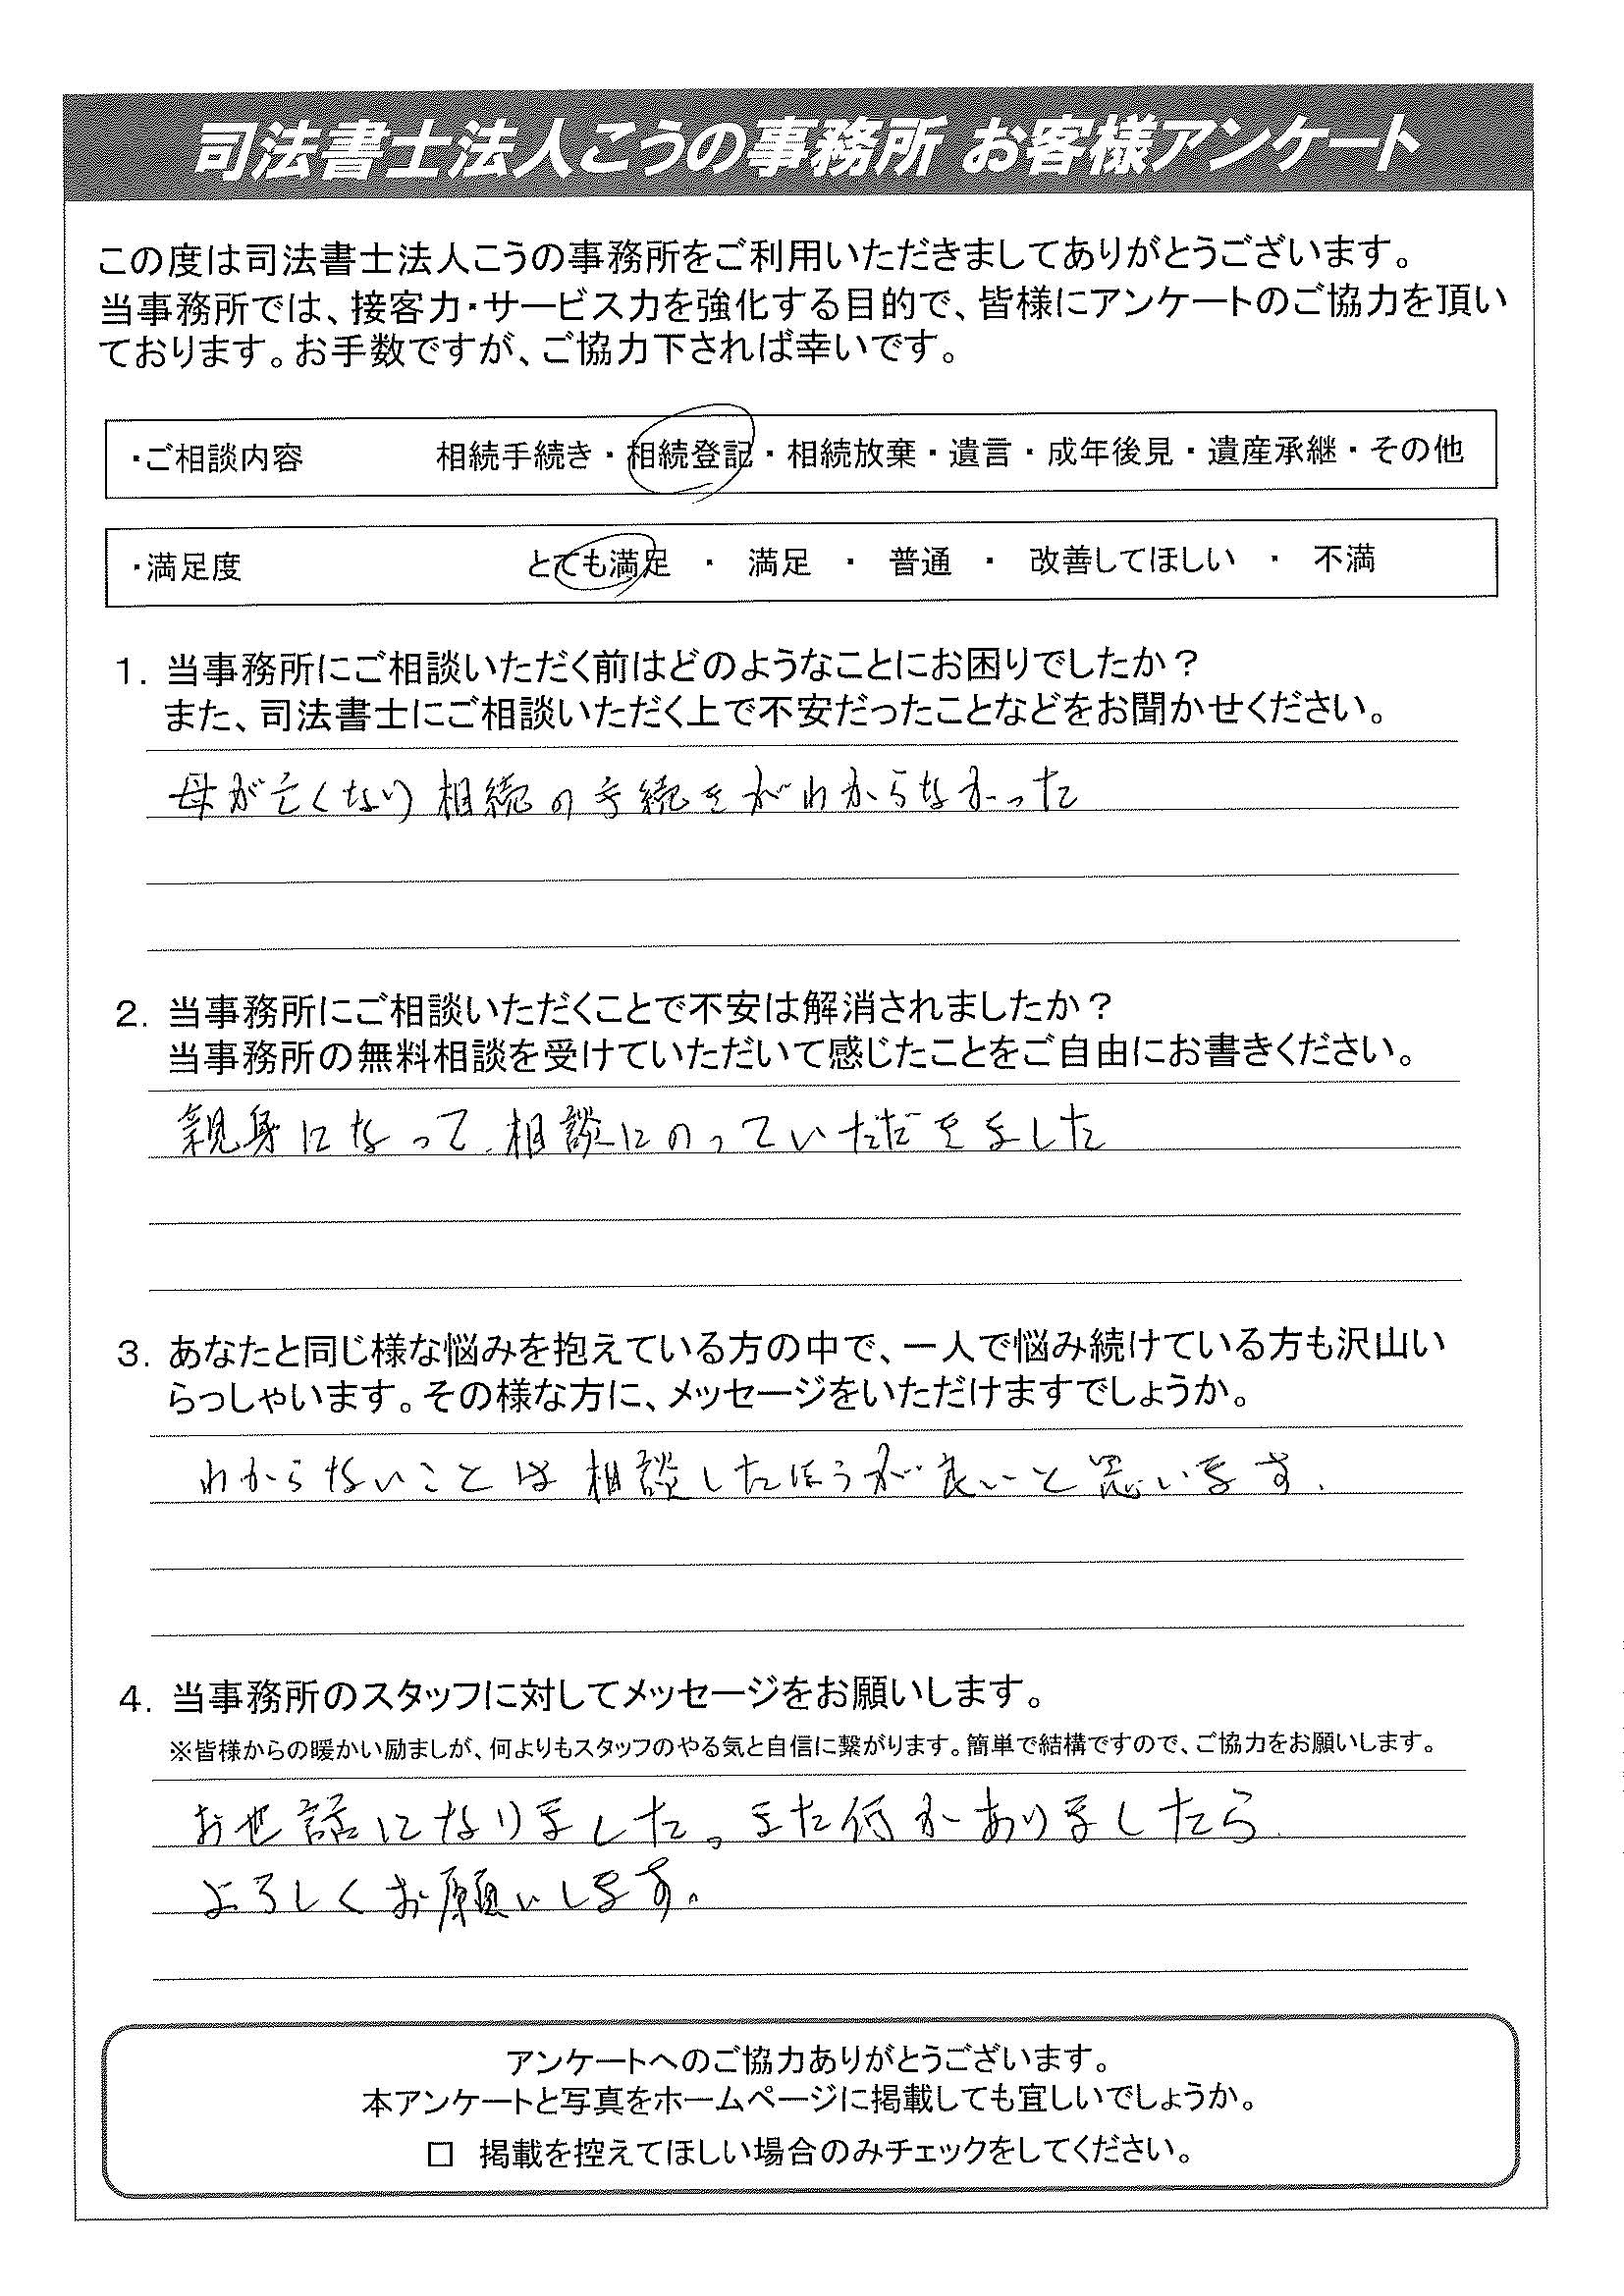 司法書士法人こうの事務所 お客様アンケート
この度は司法書士法人こうの事務所をご利用いただきましてありがとうございます。
当事務所では、接客力・サービス力を強化する目的で、皆様にアンケートのご協力を頂い
ております。お手数ですが、ご協力下されば幸いです。
・ご相談内容 相続手続き・相続登記・相続放棄・遺言・成年後見・遺産承継・その他
・満足度 とても満足 ・ 満足 ・ 普通 ・ 改善してほしい ・ 不満
1. 当事務所にご相談いただく前はどのようなことにお困りでしたか？
また、司法書士にご相談いただく上で不安だったことなどをお聞かせください。
母が亡くなり相続の手続きがわからなかった
2. 当事務所にご相談いただくことで不安は解消されましたか？
当事務所の無料相談を受けていただいて感じたことをご自由にお書きください。
親身になって、相談にのっていただきました
3. あなたと同じ様な悩みを抱えている方の中で、一人で悩み続けている方も沢山い
らっしゃいます。その様な方に、メッセージをいただけますでしょうか。
わからないことは相談したほうが良いと思います.
4. 当事務所のスタッフに対してメッセージをお願いします。
※皆様からの暖かい励ましが、何よりもスタッフのやる気と自信に繋がります。簡単で結構ですので、ご協力をお願いします。
お世話になりました。また何かありましたら
よろしくお願いします。
アンケートへのご協力ありがとうございます。
本アンケートと写真をホームページに掲載しても宜しいでしょうか。
□ 掲載を控えてほしい場合のみチェックをしてください。